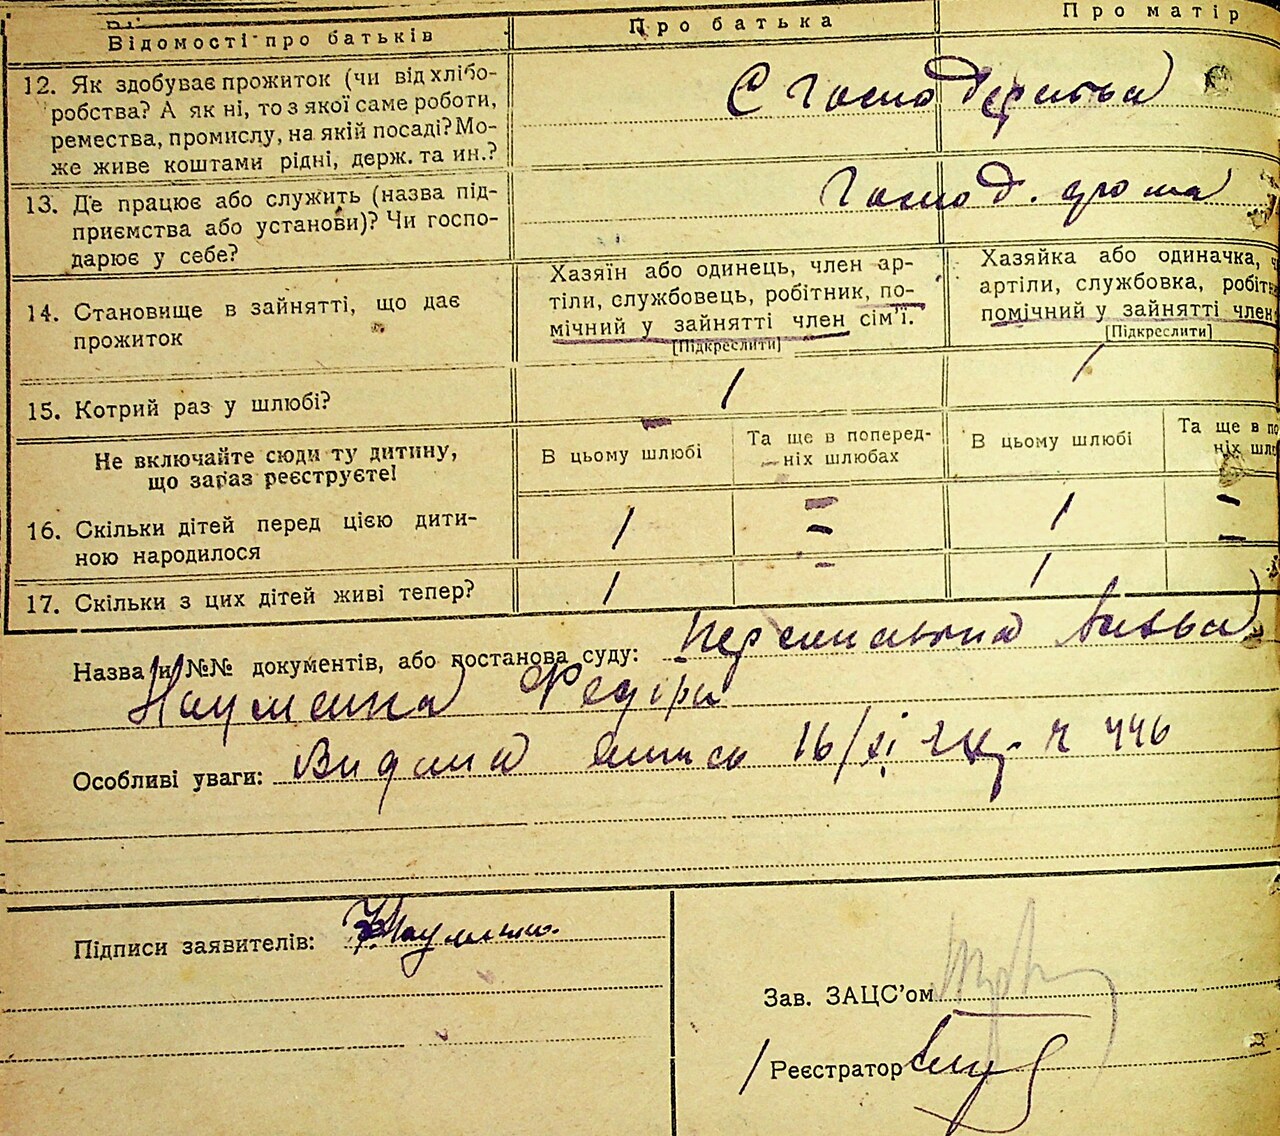 Відомості про батьків
Про батька
Про матір
12. Як здобуває прожиток (чи від хлібо-
робства? А як ні, то з якої саме роботи,
ремества, промислу, на якій посаді? Мо-
же живе коштами рідні, держ. та ин.?
С господарства
13. Де працює або служить (назва під-
приємства або установи)? Чи госпо-
дарює у себе?
Господ.
14. Становище в зайнятті, що дає
прожиток
Хазяїн або одинець, член ар-
тіли, службовець, робітник, по-
мічний у зайнятті член сім'ї.
[Підкреслити]
Хазяйка або одиначка,
артіли, службовка, робітн
помічний у зайнятті член
[Підкреслити]
15. Котрий раз у шлюбі?
1
1
Не включайте сюди ту дитину,
що зараз реєструєте!
В цьому шлюбі
Та ще в поперед-
ніх шлюбах
В цьому шлюбі
Та ще в по
ніх шлю
16. Скільки дітей перед цією дити-
ною народилося
1
–
1
–
17. Скільки з цих дітей живі тепер?
1
–
1
–
Назва и №№ документів, або постанова суду: персональна заява
Науменка Федіра
Особливі уваги: Видана випись 16/XI 446
Підписи заявителів: Науменко
Зав. ЗАЦС'ом
Реєстратор